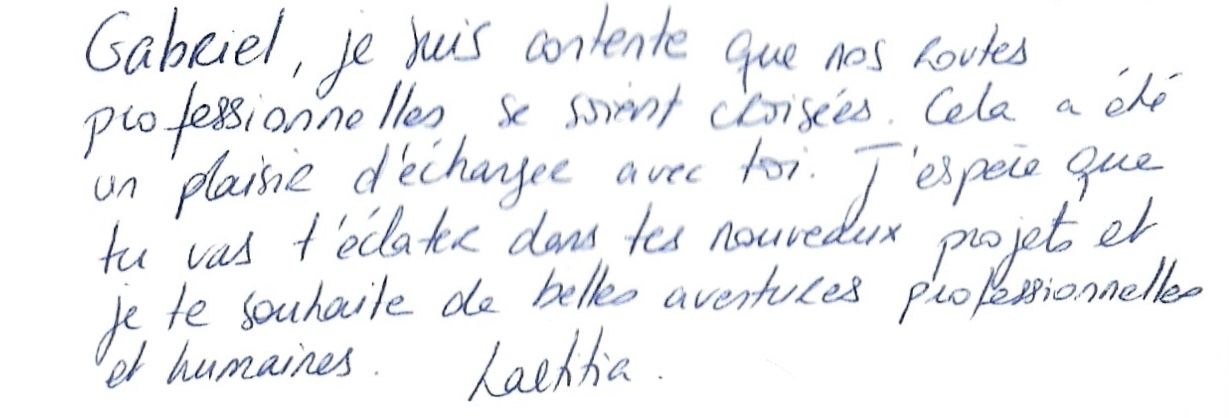 Gabriel, je suis contente que nos routes
professionnelles se soient croisées. Cela a été
un plaisir d'échanger avec toi. J'espère que
tu vas t'éclater dans tes nouveaux projets et
je te souhaite de belles aventures professionnelles
et humaines. Laetitia.